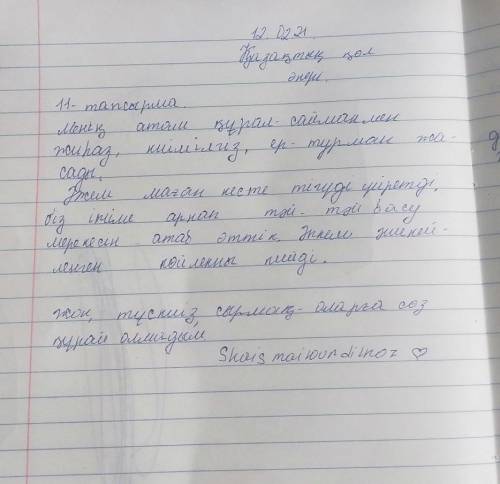 12.02.21
Қазақтың қол
өнері.
11-тапсырма.
Менің атам құрал-сайманмен
жираз, киімілгиз, ер-турман жа-
сады.
Әжем маған кесте тігуді үйретті.
біз ініме арнап тәй-тәй басу
мерекесін атаб өттік. Әпкем
ленген көйлекин кейді.
жоқ, тускииз, сырмақ-аларға сөз
құрай алмадым
Shaismailoundilnaz ♡